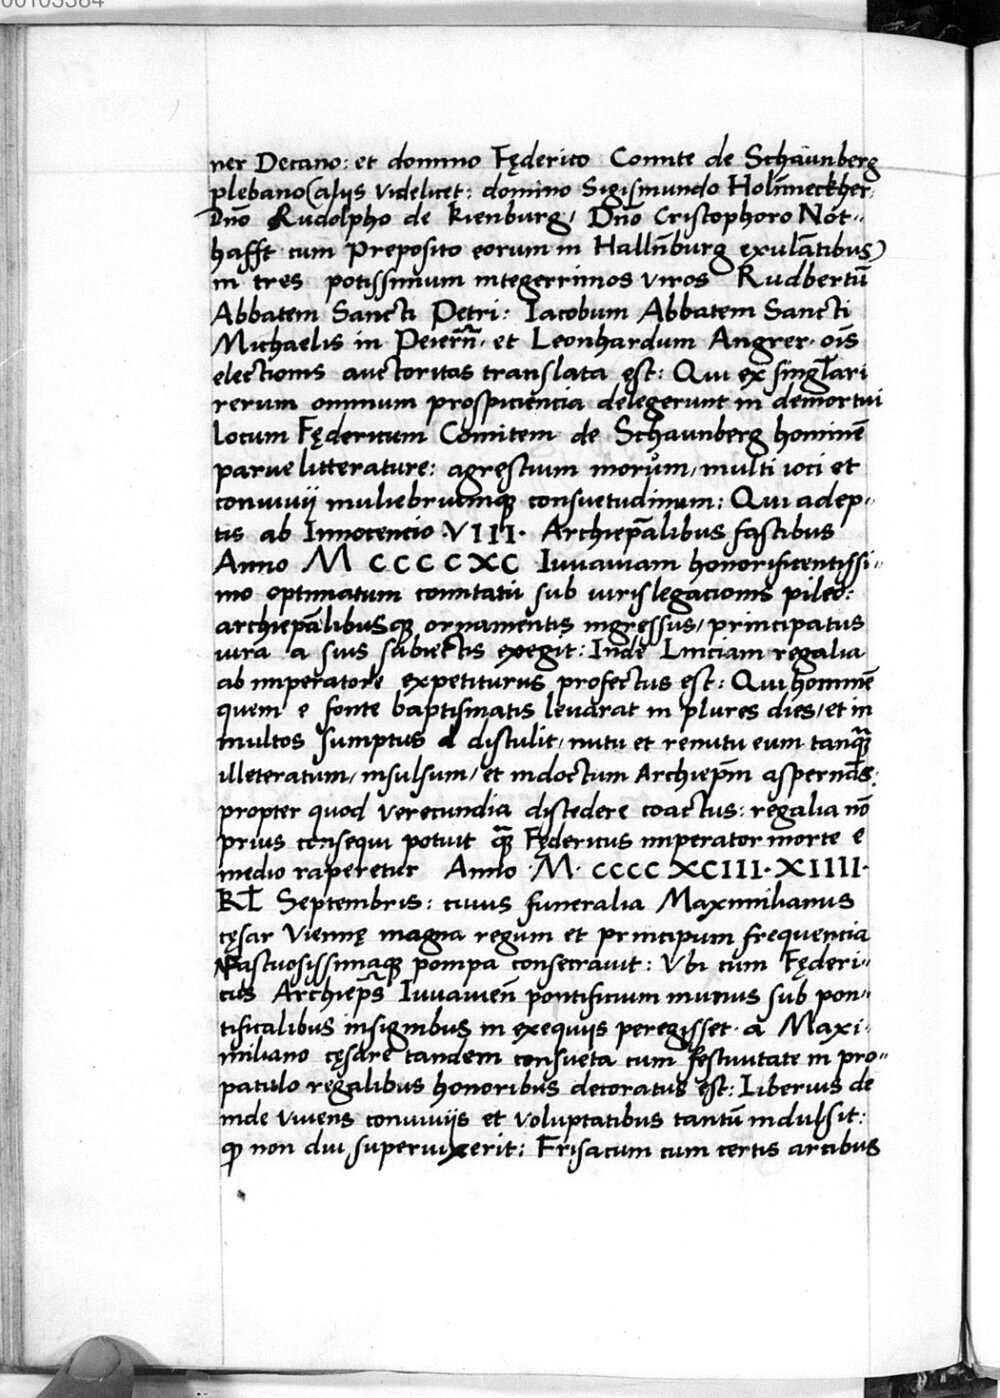 00103384
ner Decano: et domino Fęderico Comite de Schaunberg
plebano (alijs videlicet: domino Sigismundo Holnneckher,
Dño Rudolpho de kienburg/ Dño Cristophoro Not-
hafft cum Preposito eorum in Halln̄burg exulātibus)
in tres potissimum integerrimos viros Rudbertū
Abbatem Sancti Petri: Iacobum Abbatem Sancti
Michaelis in Peiern̄. et Leonhardum Angrer. oīs
electionis auctoritas translata ęst: Qui ex singlari
rerum omnium prospiciencia delegerunt in demortui
locum Fędericum Comitem de Schaunberg hominē
parue litterature: agrestium morum, multi ioci et
conuiuij muliebriumqꝫ consuetudinum: Qui adep-
tis ab Innocencio .VIII. Archiepālibus fastibus
Anno M CCCC XC Iuuauiam honorificentissi-
mo optimatum comitatū sub iuris legacionis pileo:
archiepālibusqꝫ ornamentis ingressus, principatus
iura a suis subiectis exegit: Inde Linciam regalia
ab imperatore expetiturus profectus est: Qui hominē
quem e fonte baptismatis leuarat in plures dies, et in
multos sumptus d distulit, nutu et renutu eum tanqꝫ
illeteratum, insulsum, et indoctum Archiepm̄ aspernās:
propter quod verecundia discedere coactus: regalia nō
prius consequi potuit qꝫ Fędericus imperator morte e
medio raperetur Anno .M. CCCC XCIII. XIIII.
Kł Septembris: cuius funeralia Maximilianus
cęsar Viennę magna regum et principum frequencia
Fastuosissimaqꝫ pompa consecrauit: Vbi cum Fęderi-
cus Archiepūs Iuuauien̄ pontificium munus sub pon-
tificalibus insignibus in exequijs peregisset. a Maxi-
miliano cęsare tandem consueta cum festiuitate in pro-
patulo regalibus honoribus decoratus est: Liberius de
inde viuens conuiuijs et voluptatibus tantū indulsit:
qꝫ non diu superuixerit: Frisacum cum certis arcibus